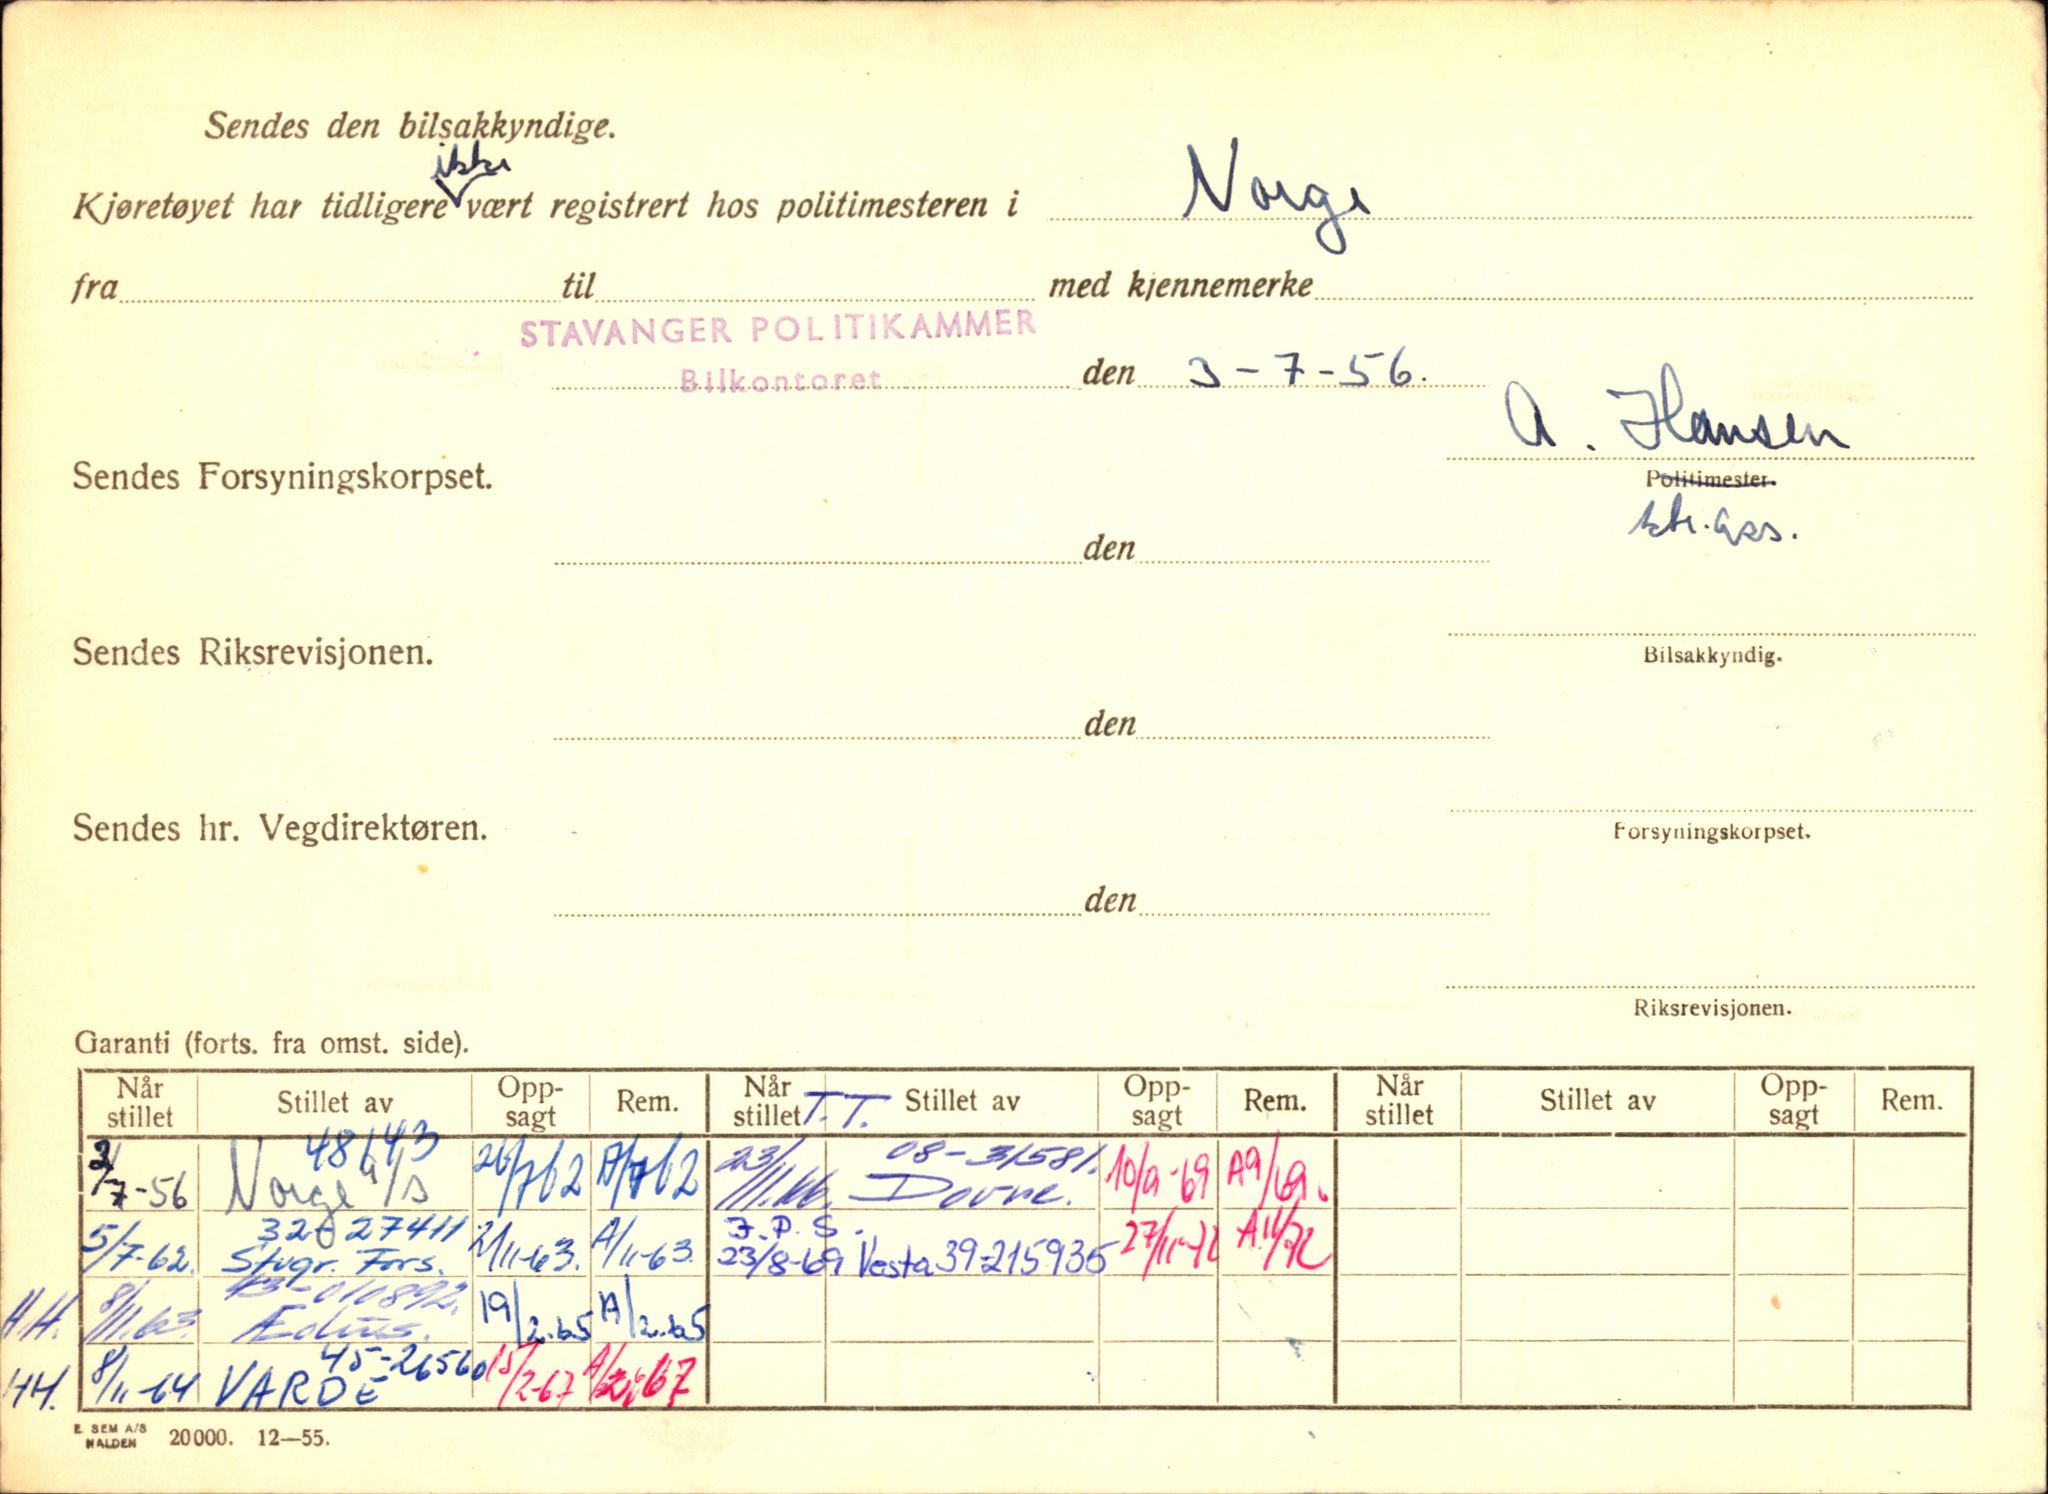 Sendes den bilsakkyndige.
ikke
Kjøretøyet har tidligere vært registrert hos politimesteren i Norge
fra til med kjennemerke
STAVANGER POLITIKAMMER
Bilkontoret den 3-7-56.
A. Hansen
Sendes Forsyningskorpset. Politimester.
ktr. ass.
den
Sendes Riksrevisjonen. Bilsakkyndig.
den
Sendes hr. Vegdirektøren. Forsyningskorpset.
den
Riksrevisjonen.
Garanti (forts. fra omst. side).
Når stillet Stillet av Opp-sagt Rem. Når stillet T.T. Stillet av Opp-sagt Rem. Når stillet Stillet av Opp-sagt Rem.
48143 08-31581.
3/7-56 Norge A/S 26/7 62 A/7 62 23/11.66. Dovre. 10/9-69 A9/69.
32-27411 J.P.S.
5/7-62. Stvgr. Fors. 2/11-63. A/11-63. 23/8-69 Vesta 39-215935 27/11-72 A11/72
43-010892.
H.H. 8/11.63. Ædius. 19/2.65 A/2.65
45-26560
HH. 8/11-64 VARDE 15/2-67 A/2 67
E. SEM A/S
HALDEN 20000. 12—55.